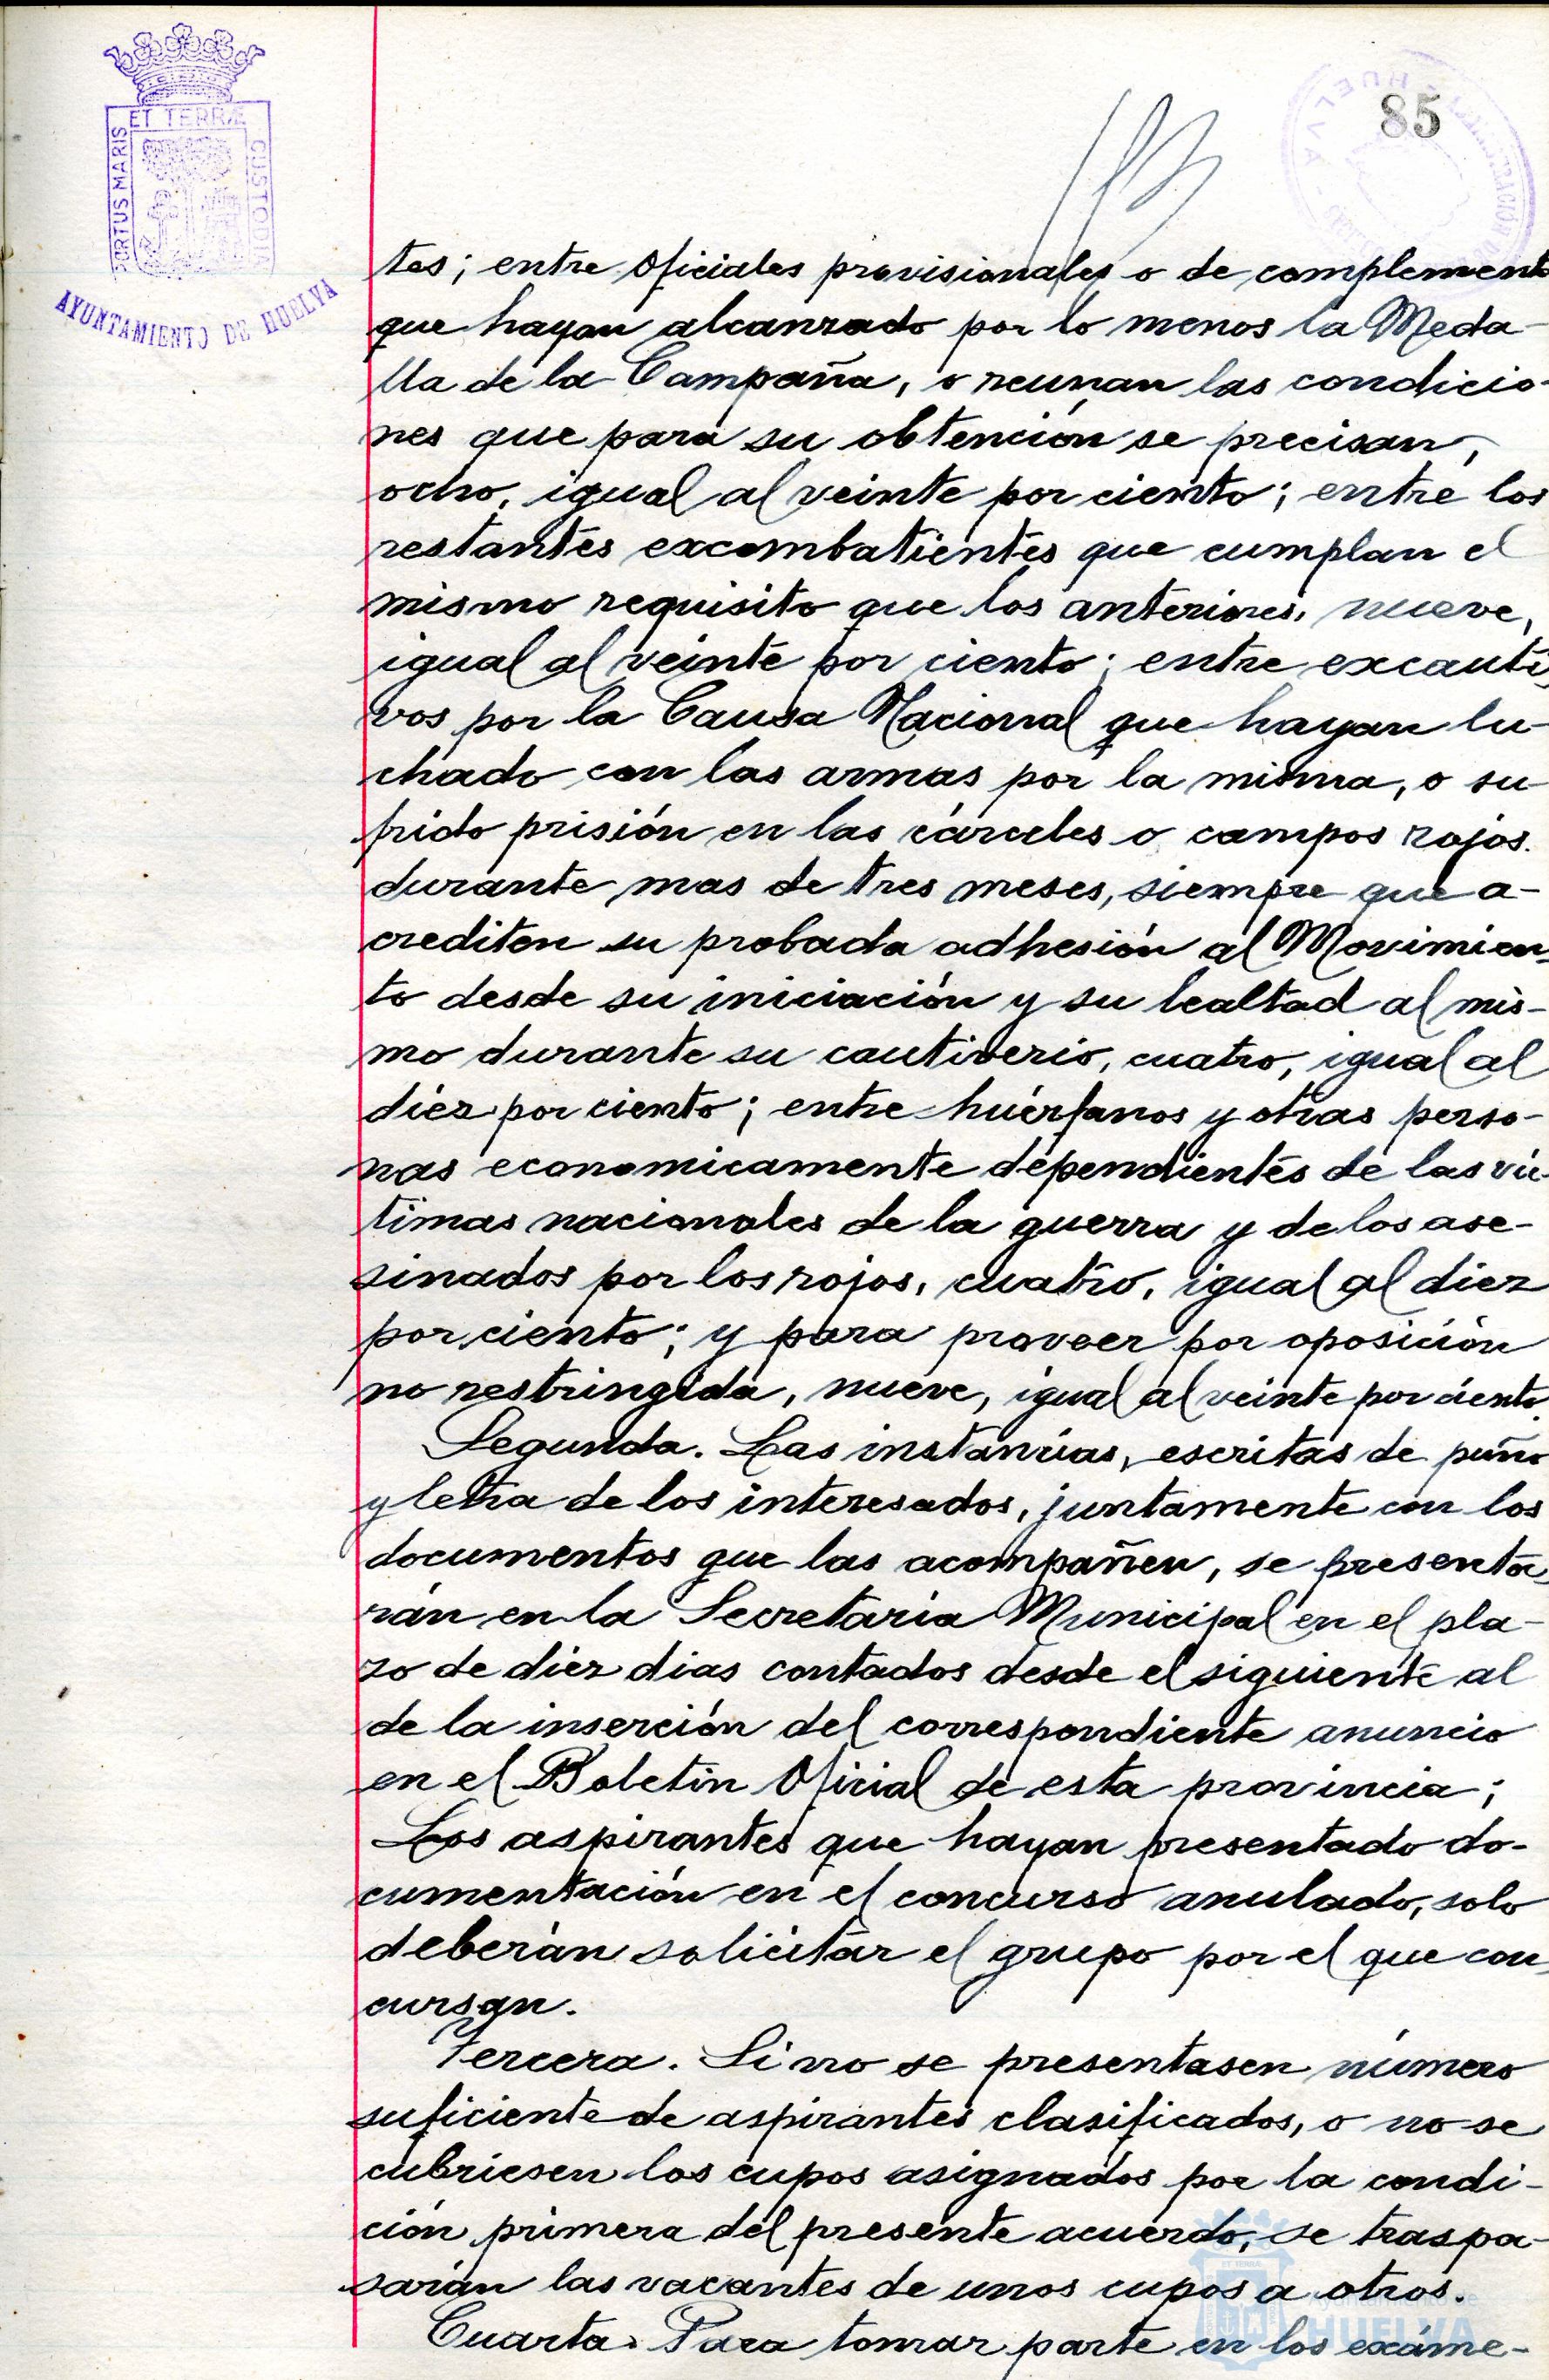 ET TERRÆ
PORTUS MARIS
CUSTODIA
AYUNTAMIENTO DE HUELVA
85
HUELVA
tes; entre Oficiales provisionales o de complemento
que hayan alcanzado por lo menos la Meda-
lla de la Campaña, o reunan las condicio-
nes que para su obtención se precisan,
ocho, igual al veinte por ciento; entre los
restantes excombatientes que cumplan el
mismo requisito que los anteriores, nueve,
igual al veinte por ciento; entre excauti-
vos por la Causa Nacional que hayan lu-
chado con las armas por la misma, o su-
frido prisión en las cárceles o campos rojos
durante mas de tres meses, siempre que a-
crediten su probada adhesión al Movimien-
to desde su iniciación y su lealtad al mis-
mo durante su cautiverio, cuatro, igual al
diez por ciento; entre huérfanos y otras perso-
nas economicamente dependientes de las víc-
timas nacionales de la guerra y de los ase-
sinados por los rojos, cuatro, igual al diez
por ciento; y para proveer por oposición
no restringida, nueve, igual al veinte por ciento.
Segunda. Las instancias, escritas de puño
y letra de los interesados, juntamente con los
documentos que las acompañen, se presenta-
rán en la Secretaria Municipal en el pla-
zo de diez dias contados desde el siguiente al
de la inserción del correspondiente anuncio
en el Boletin Oficial de esta provincia;
Los aspirantes que hayan presentado do-
cumentación en el concurso anulado, solo
deberán solicitar el grupo por el que con-
cursan.
Tercera. Si no se presentasen número
suficiente de aspirantes clasificados, o no se
cubriesen los cupos asignados por la condi-
ción primera del presente acuerdo, se traspa-
sarán las vacantes de unos cupos a otros.
Cuarta. Para tomar parte en los exáme-
Ayuntamiento de
HUELVA